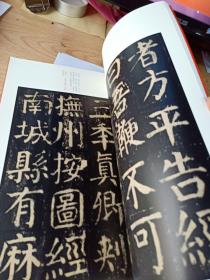 者方平告經
曰吾鞭不可
三年真卿刺
撫州按圖經
南城縣有麻